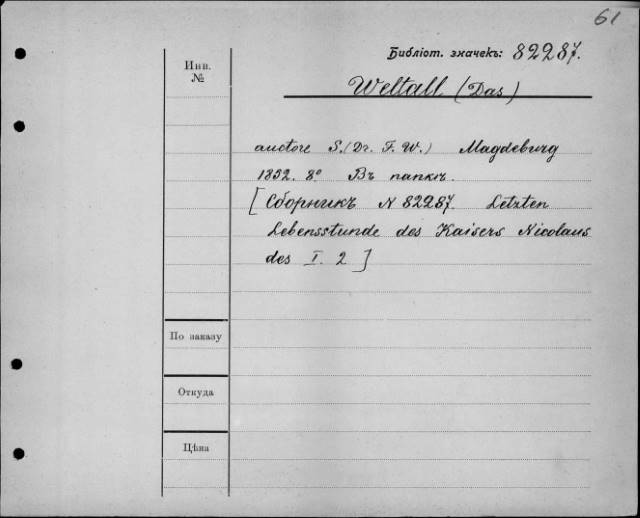 61
Библіот. значекъ: 82287.
Инв.
№
Weltall (Das)
auctore S. (Dr. F. W.) Magdeburg
1852. 8° Въ папкѣ.
[Сборникъ N 82287. Letzten
Lebensstunde des Kaisers Nicolaus
des I. 2]
По заказу
Откуда
Цѣна